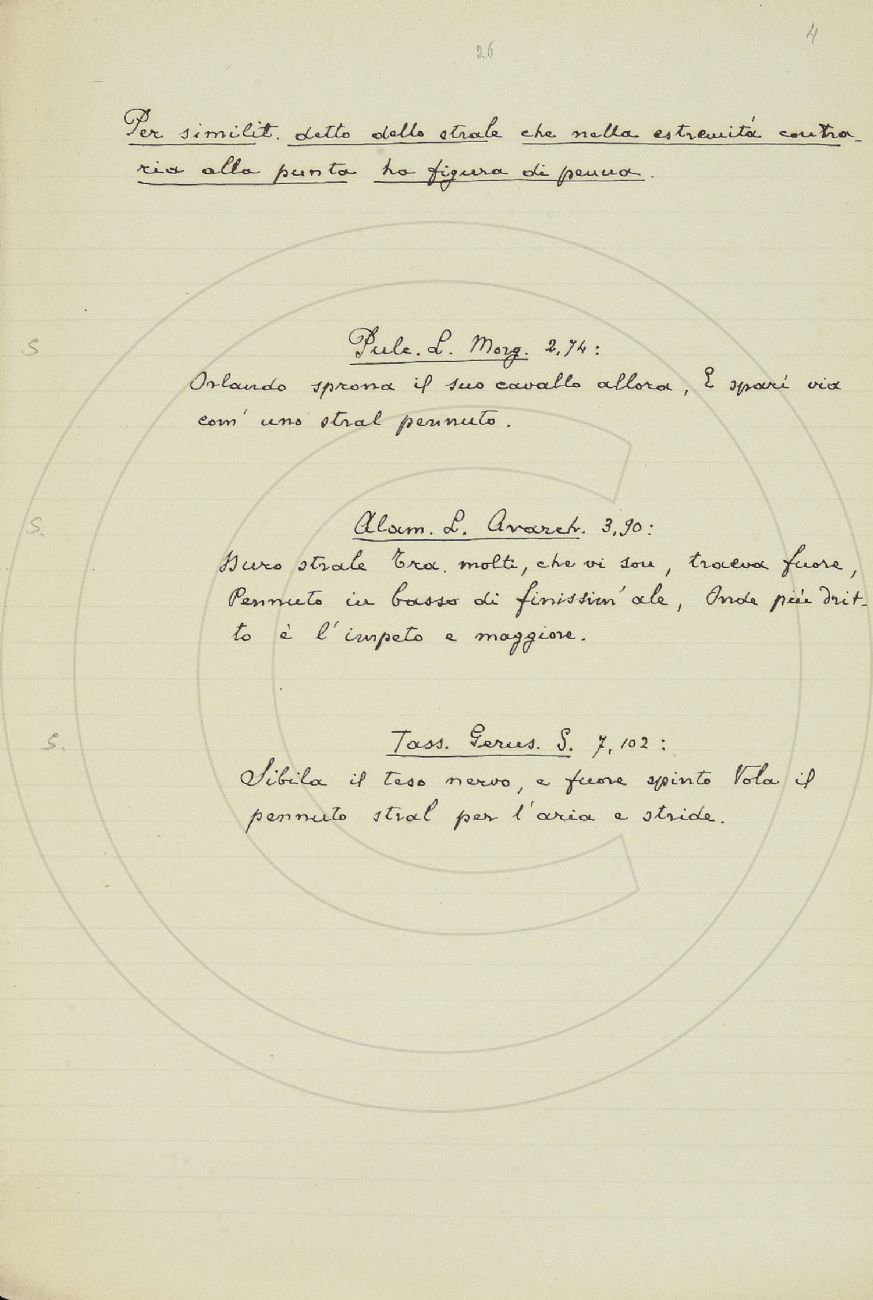 4
26
Per similit. detto dello strale che nella estremità contra-
ria alla punta ha figura di penna.
S Pulc. L. Morg. 2,74:
Orlando sprona il suo cavallo allora, E sparì via
com' uno stral pennuto.
S. Alam. L. Avarch. 3,90:
Duro strale Tra molti, che vi son, traeva fuore,
Pennuto in basso di finissim' ale, Onde più drit-
to è l'impeto e maggiore.
S. Tass. Gerus. S. 7,102:
Sibila il teso nervo, e fuore spinto Vola il
pennuto stral per l'aria e stride.